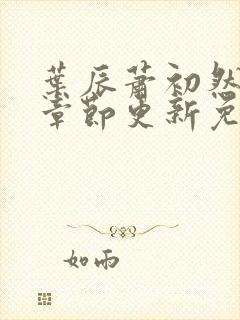 葉辰蕭初然
章節更新免
如雨